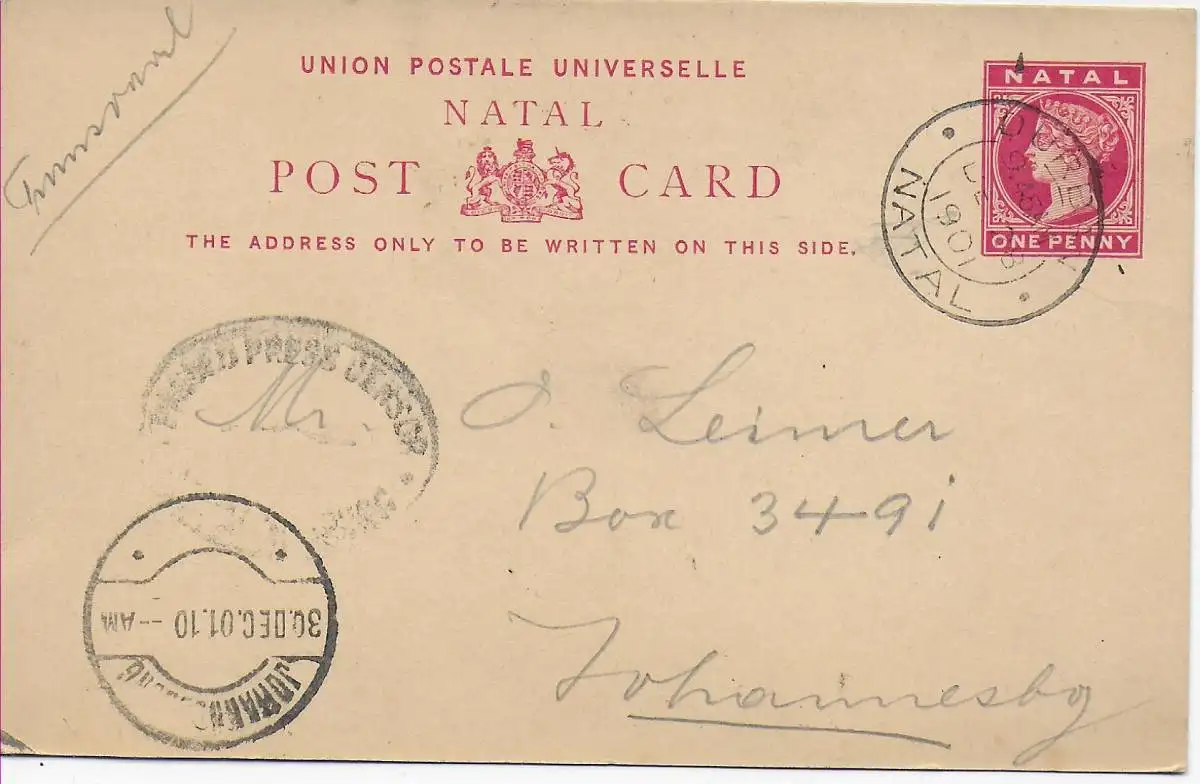 Transvaal
UNION POSTALE UNIVERSELLE
NATAL
POST CARD
THE ADDRESS ONLY TO BE WRITTEN ON THIS SIDE.
NATAL
ONE PENNY
DURBAN
1901
NATAL
PASSED PRESS CENSOR
Mr. O. Leimer
Box 3491
Johannesbg
JOHANNESBURG
30.DEC.01.10 --AM